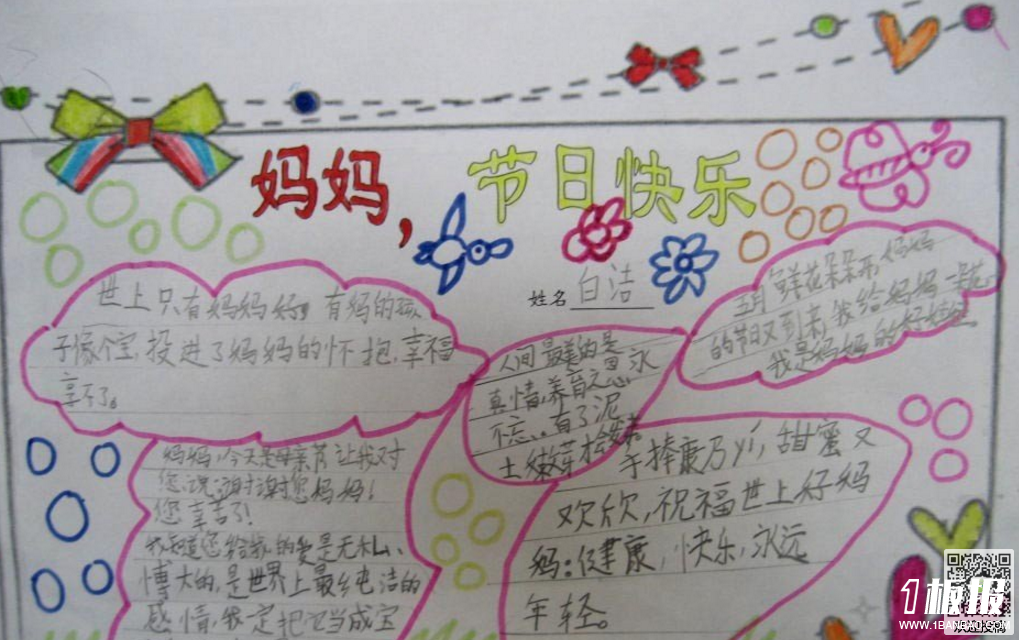 妈妈，节日快乐
姓名 白洁
世上只有妈妈好，有妈的孩
子像个宝，投进了妈妈的怀抱，幸福
享不了。
五月鲜花朵朵开，妈妈
的节日又到来，我给妈妈一朵花
我是妈妈的好娃娃
人间最美的是
真情，养育之恩永
不忘
有了泥
土嫩芽才
手捧康乃yí，甜蜜又
欢欣，祝福世上好妈
妈：健康，快乐，永远
年轻。
妈妈，今天是母亲节让我对
您说：谢谢您妈妈！
您辛苦了！
我知道您给我的爱是无私、
博大的，是世界上最纯洁的
感情，我一定把它当成宝
1板报
WWW.1BANBAO.COM
欢迎投稿